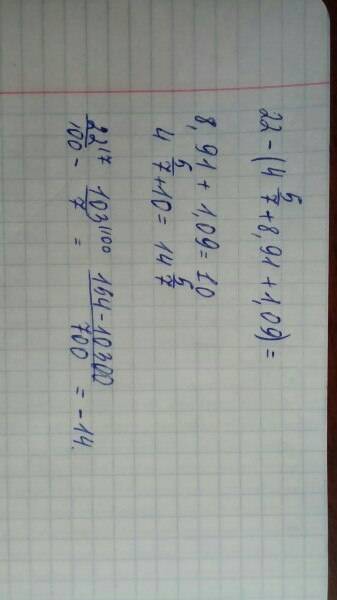 22 - (4 5/7 + 8,91 + 1,09) =
8,91 + 1,09 = 10
4 5/7 + 10 = 14 5/7
22/100 ^17 - 103/7 ^100 = 154 - 10300/700 = - 14